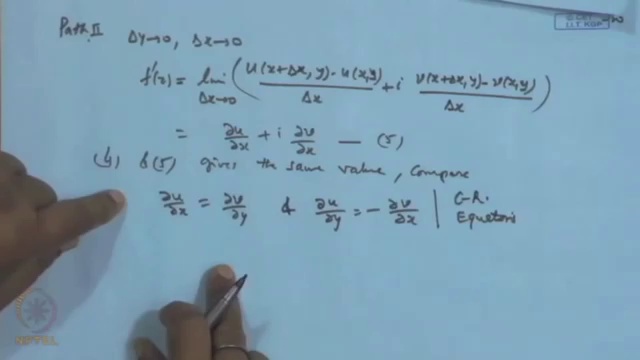 Path. II Δy→0, Δx→0
f'(z) = lim Δx→0 ( u(x+Δx, y) - u(x,y) / Δx + i v(x+Δx, y) - v(x,y) / Δx )
= ∂u/∂x + i ∂v/∂x — (5)
(4) & (5) gives the same value, compare
∂u/∂x = ∂v/∂y & ∂u/∂y = - ∂v/∂x | C-R.
Equations
I.I.T. KGP
NPTEL